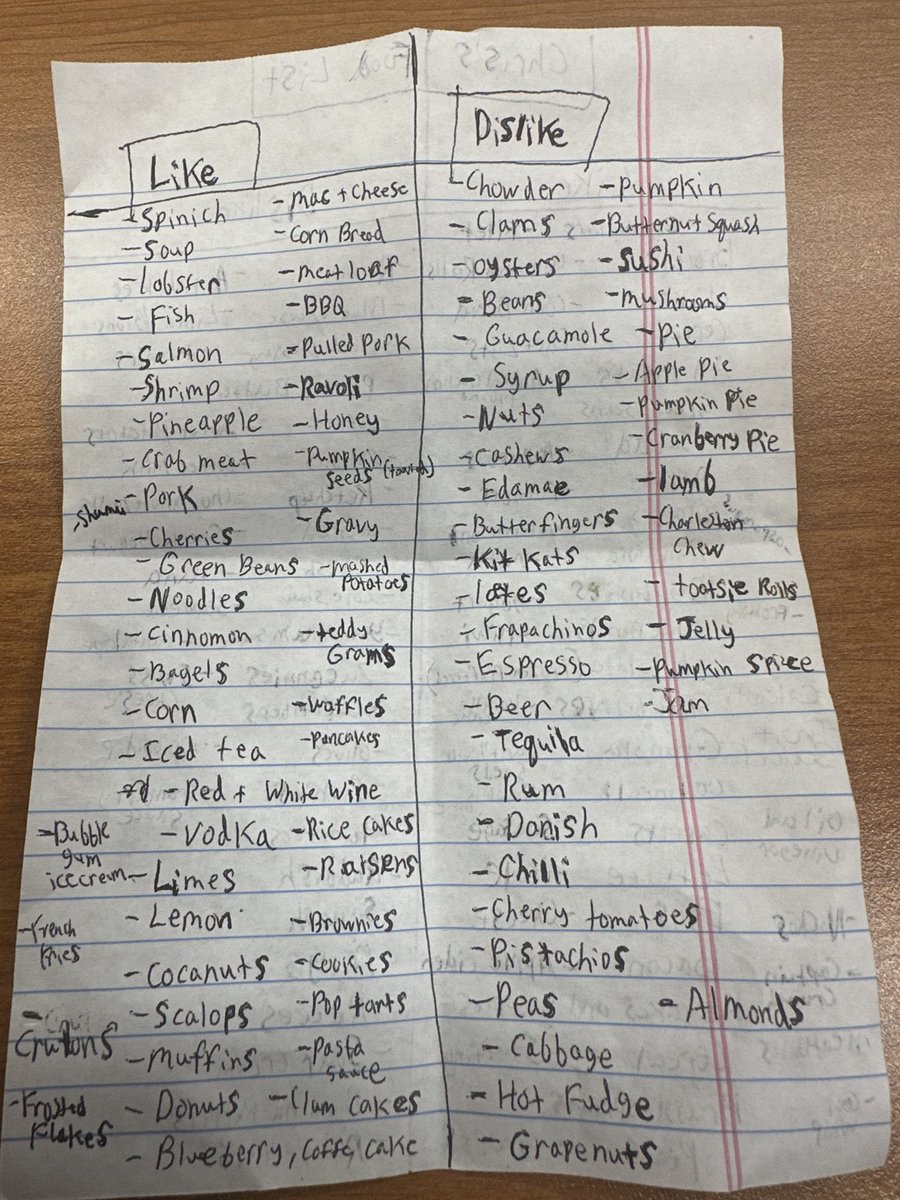 Chris's Food List
Like
- Spinich
- Soup
- lobster
- Fish
- Salmon
- Shrimp
- Pineapple
- Crab meat
- Pork
- Cherries
- Green Beans
- Noodles
- Cinnomon
- Bagels
- Corn
- Iced tea
- Red + White Wine
- Vodka
- Limes
- Lemon
- Cocanuts
- Scalops
- Muffins
- Donuts
- Blueberry, Coffe, cake
- Bubble
gum
icecream
- french
fries
Crutons
- Frosted
Flakes
- Mac + Cheese
- Corn Bread
- meat loaf
- BBQ
- Pulled Pork
- Ravoli
- Honey
- Pumpkin
seeds
- Gravy
- mashed
Potatoes
- teddy
Grams
- Waffles
- Pancakes
- Rice Cakes
- Raisens
- Brownies
- Cookies
- Pop tarts
- Pasta
sauce
- Clam cakes
Dislike
- Chowder
- Clams
- oysters
- Beans
- Guacamole
- Syrup
- Nuts
- Cashews
- Edamae
- Butterfingers
- Kit Kats
- lattes
- Frapachinos
- Espresso
- Beer
- Tequila
- Rum
- Danish
- Chilli
- Cherry tomatoes
- Pistachios
- Peas
- Cabbage
- Hot Fudge
- Grapenuts
- Pumpkin
- Butternut Squash
- Sushi
- mushrooms
- Pie
- Apple Pie
- Pumpkin Pie
- Cranberry Pie
- lamb
- Charleston
Chew
- tootsie Rolls
- Jelly
- Pumpkin Spice
- Jam
- Almonds